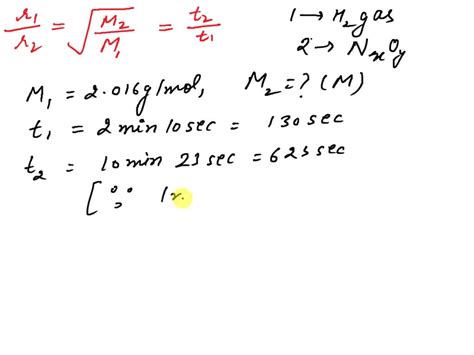 r1/r2 = √(M2/M1) = t2/t1
1 → H2 gas
2 → NxOy
M1 = 2.016 g/mol, M2 = ? (M)
t1 = 2 min 10 sec = 130 sec
t2 = 10 min 23 sec = 623 sec
[ ∵